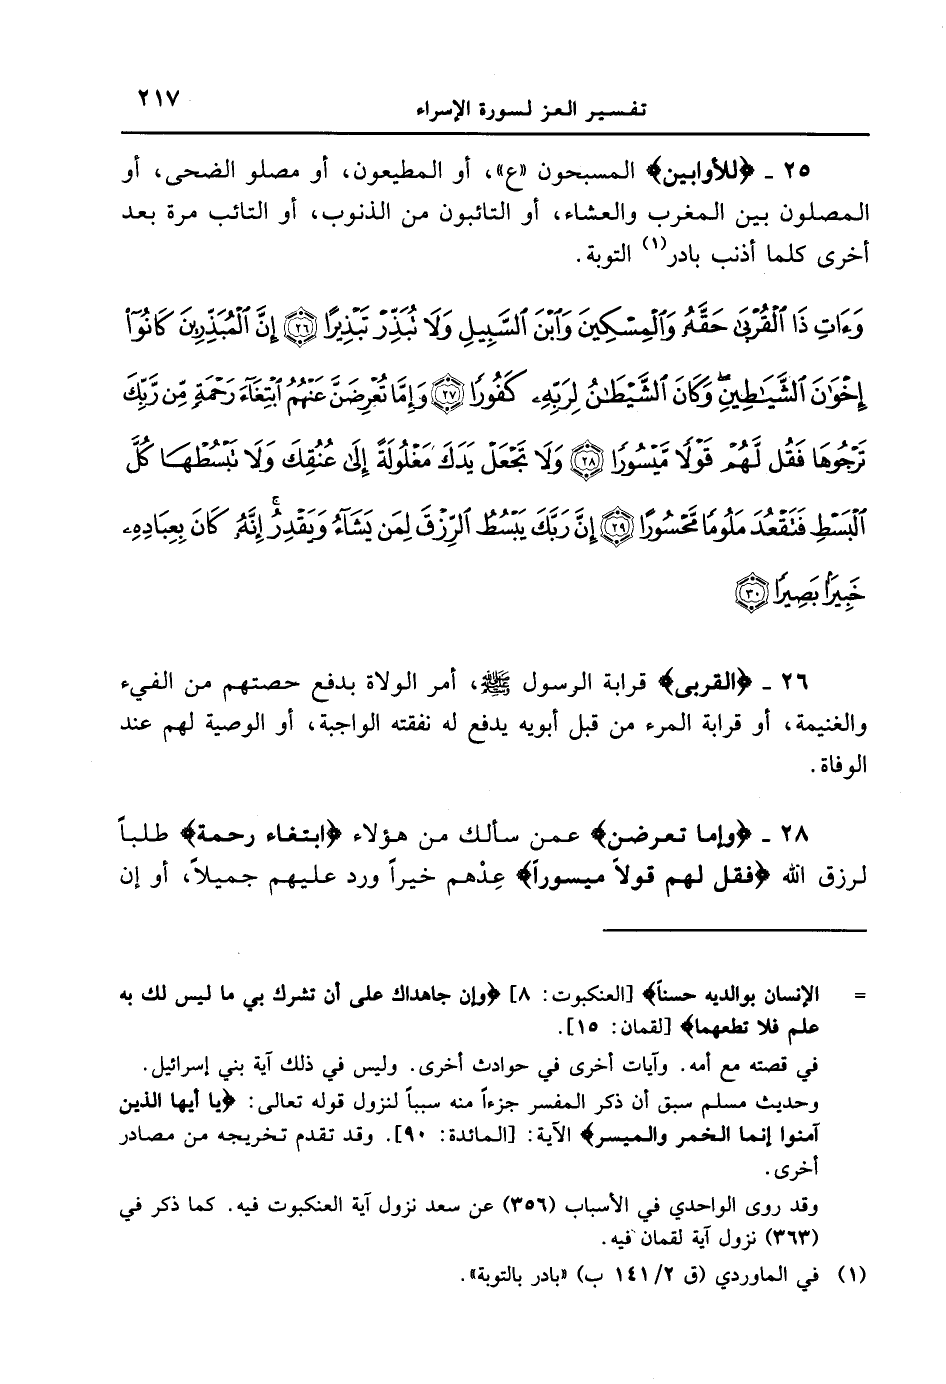 تفسير العز لسورة الإسراء ٢١٧
٢٥ - ﴿للأوابين﴾ المسبحون «ع»، أو المطيعون، أو مصلو الضحى، أو
المصلون بين المغرب والعشاء، أو التائبون من الذنوب، أو التائب مرة بعد
أخرى كلما أذنب بادر(١) التوبة.
وَءَاتِ ذَا ٱلْقُرْبَىٰ حَقَّهُۥ وَٱلْمِسْكِينَ وَٱبْنَ ٱلسَّبِيلِ وَلَا تُبَذِّرْ تَبْذِيرًا ﴿٢٦﴾ إِنَّ ٱلْمُبَذِّرِينَ كَانُوٓا۟
إِخْوَٰنَ ٱلشَّيَـٰطِينِ ۖ وَكَانَ ٱلشَّيْطَـٰنُ لِرَبِّهِۦ كَفُورًا ﴿٢٧﴾ وَإِمَّا تُعْرِضَنَّ عَنْهُمُ ٱبْتِغَآءَ رَحْمَةٍ مِّن رَّبِّكَ
تَرْجُوهَا فَقُل لَّهُمْ قَوْلًا مَّيْسُورًا ﴿٢٨﴾ وَلَا تَجْعَلْ يَدَكَ مَغْلُولَةً إِلَىٰ عُنُقِكَ وَلَا تَبْسُطْهَا كُلَّ
ٱلْبَسْطِ فَتَقْعُدَ مَلُومًا مَّحْسُورًا ﴿٢٩﴾ إِنَّ رَبَّكَ يَبْسُطُ ٱلرِّزْقَ لِمَن يَشَآءُ وَيَقْدِرُ ۚ إِنَّهُۥ كَانَ بِعِبَادِهِۦ
خَبِيرًۢا بَصِيرًا ﴿٣٠﴾
٢٦ - ﴿القربى﴾ قرابة الرسول ﷺ، أمر الولاة بدفع حصتهم من الفيء
والغنيمة، أو قرابة المرء من قبل أبويه يدفع له نفقته الواجبة، أو الوصية لهم عند
الوفاة.
٢٨ - ﴿وإما تعرضن﴾ عمن سألك من هؤلاء ﴿ابتغاء رحمة﴾ طلباً
لرزق الله ﴿فقل لهم قولاً ميسوراً﴾ عِدْهم خيراً ورد عليهم جميلاً، أو إن
= الإنسان بوالديه حسناً﴾ [العنكبوت: ٨] ﴿وإن جاهداك على أن تشرك بي ما ليس لك به
علم فلا تطعهما﴾ [لقمان: ١٥].
في قصته مع أمه. وآيات أخرى في حوادث أخرى. وليس في ذلك آية بني إسرائيل.
وحديث مسلم سبق أن ذكر المفسر جزءاً منه سبباً لنزول قوله تعالى: ﴿يا أيها الذين
آمنوا إنما الخمر والميسر﴾ الآية: [المائدة: ٩٠]. وقد تقدم تخريجه من مصادر
أخرى.
وقد روى الواحدي في الأسباب (٣٥٦) عن سعد نزول آية العنكبوت فيه. كما ذكر في
(٣٦٣) نزول آية لقمان فيه.
(١) في الماوردي (ق ١٤١/٢ ب) «بادر بالتوبة».